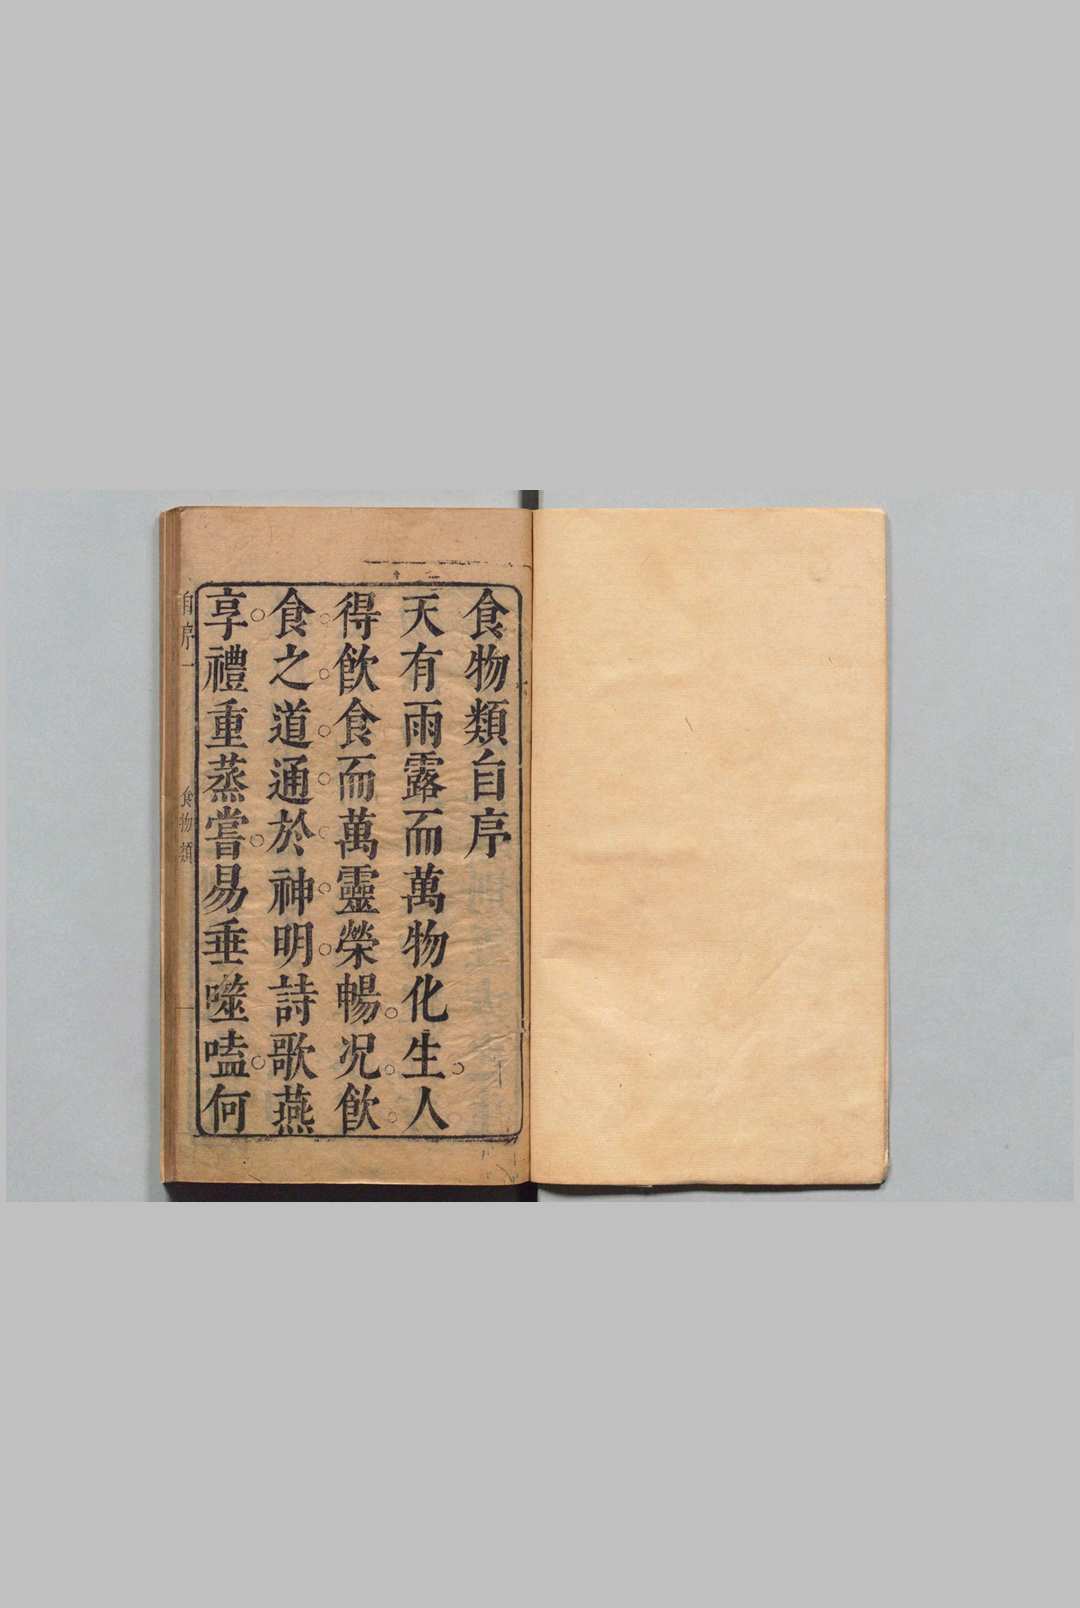 食物類自序
天有雨露而萬物化生人
得飮食而萬靈榮暢况飮
食之道通於神明詩歌燕
享禮重蒸嘗易垂噬嗑何
自序一 食物類